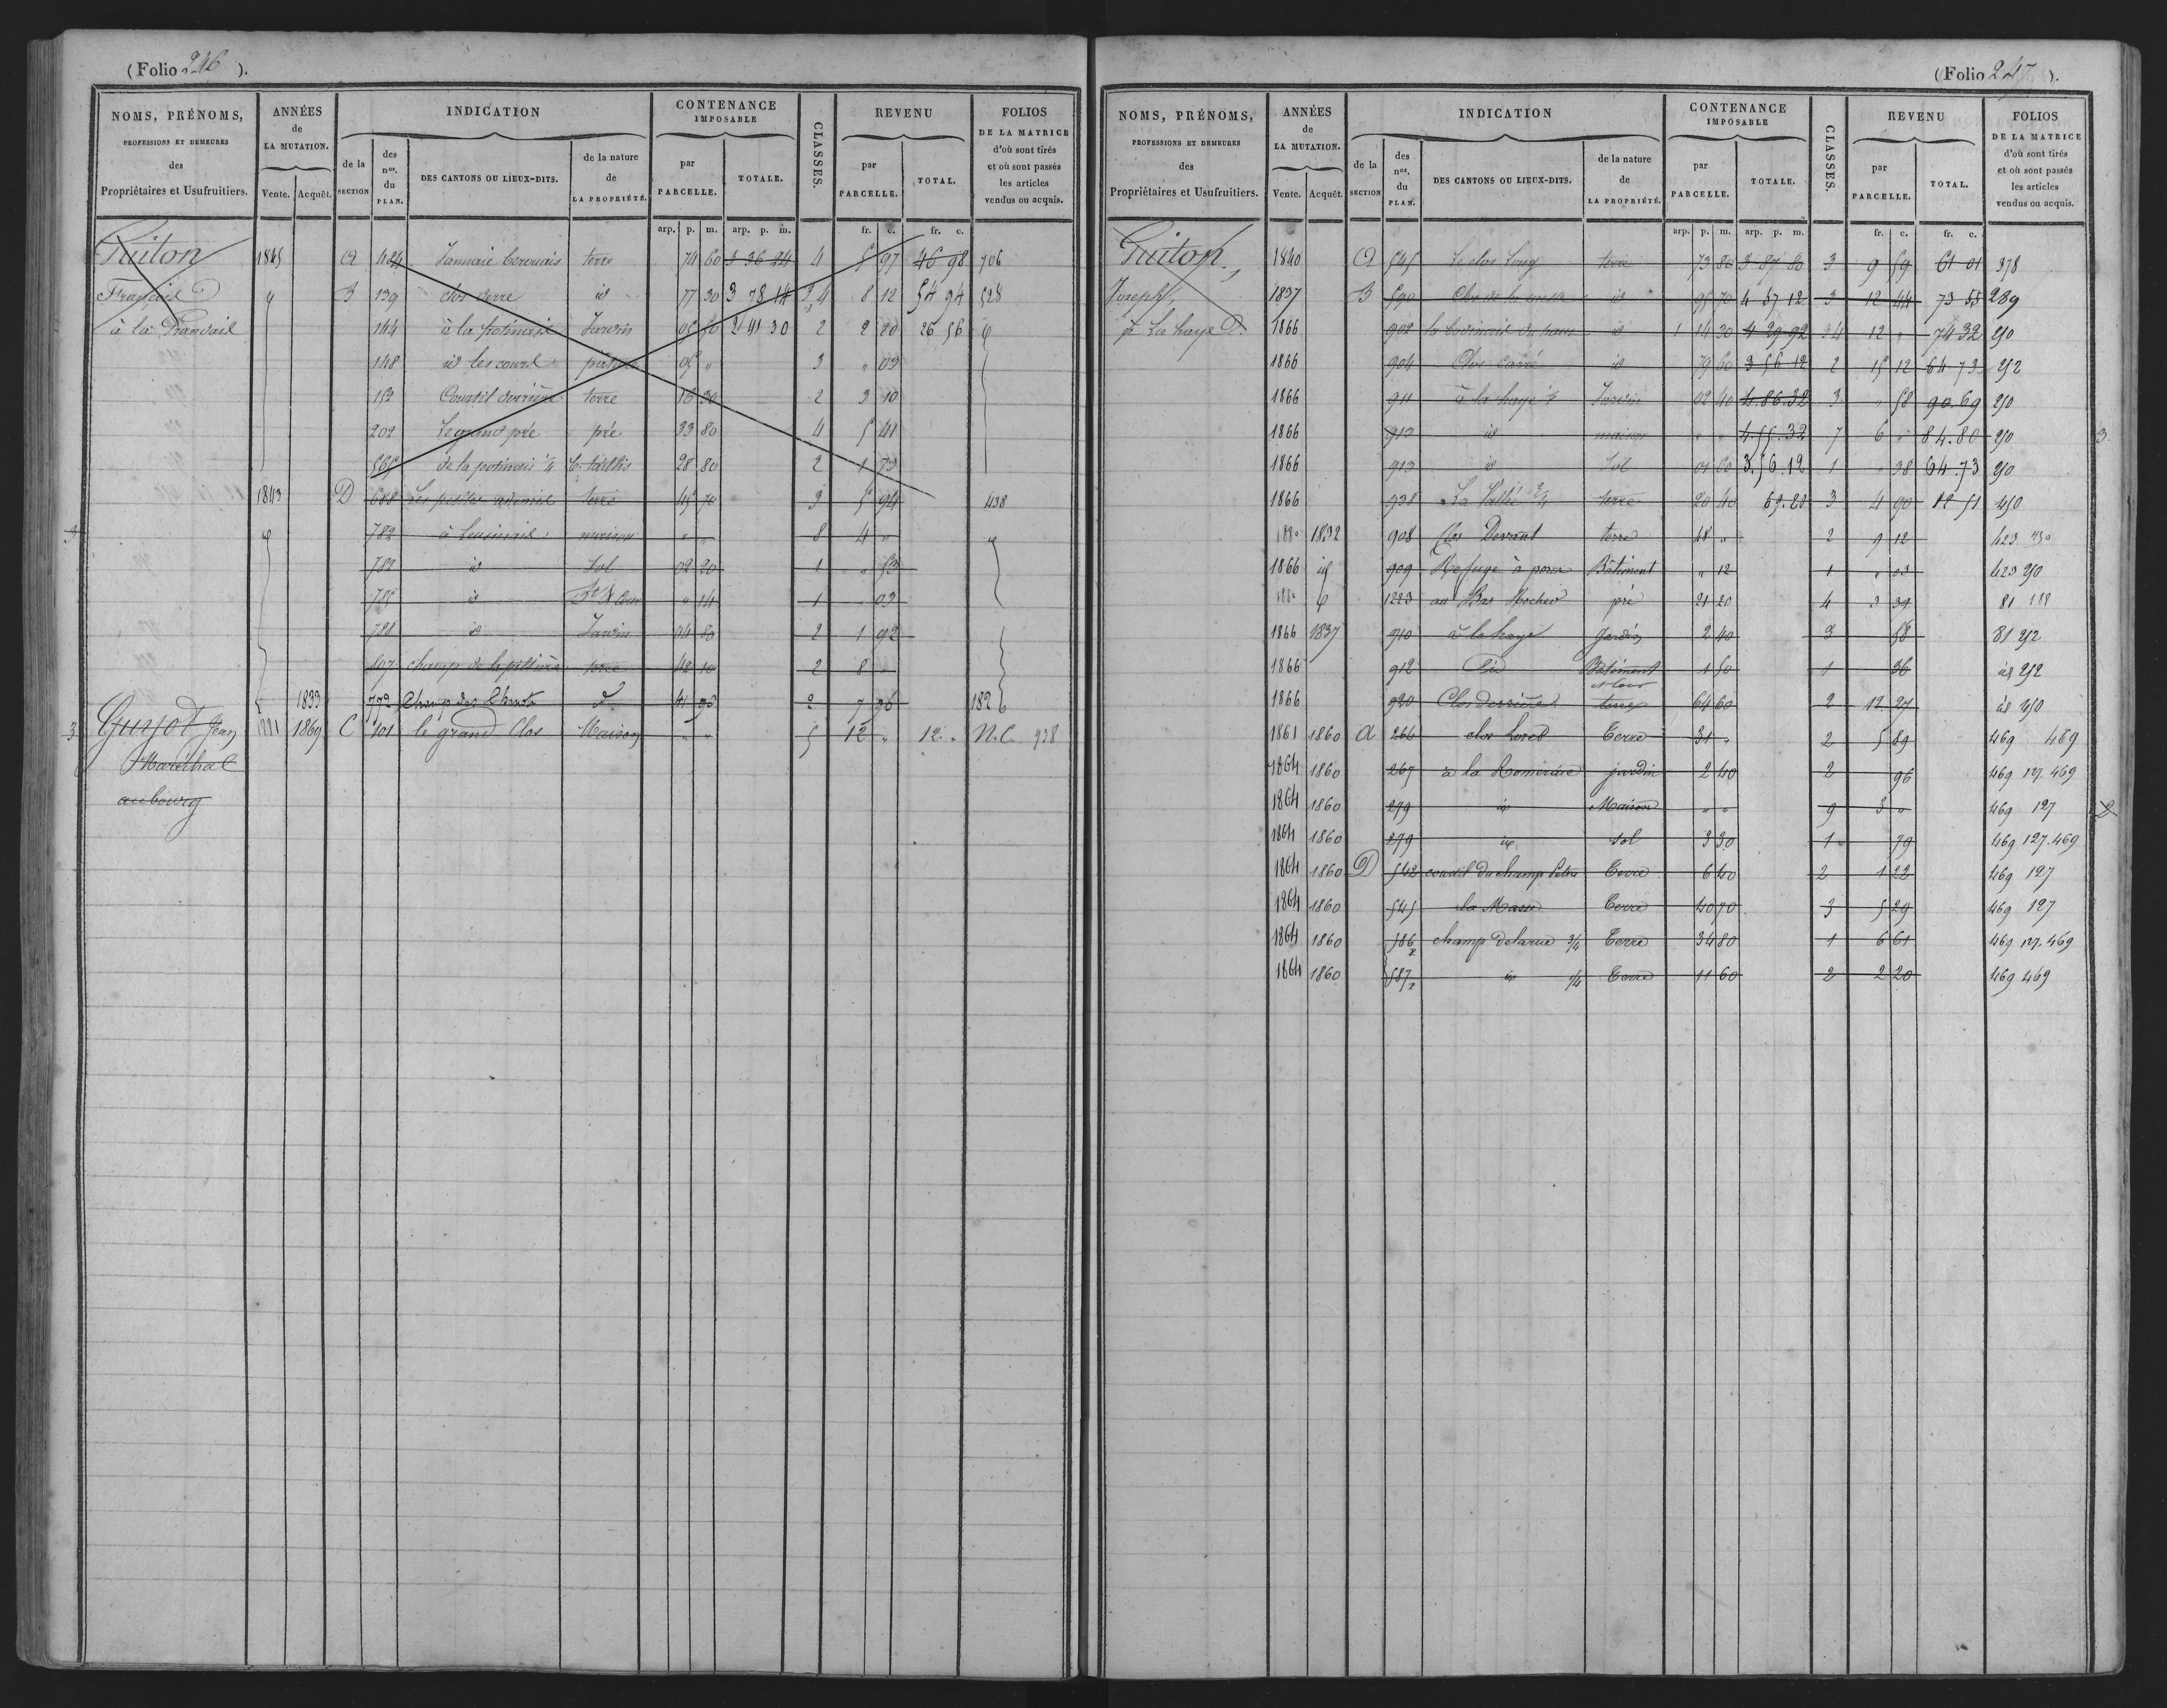 (Folio 246 ).
NOMS, PRÉNOMS, PROFESSIONS ET DEMEURES des Propriétaires et Usufruitiers.
ANNÉES de LA MUTATION. Vente. Acquêt.
INDICATION
de la SECTION
des nos. du PLAN.
DES CANTONS OU LIEUX-DITS.
de la nature de LA PROPRIÉTÉ.
CONTENANCE IMPOSABLE
par PARCELLE. TOTALE.
CLASSES.
REVENU
par PARCELLE. TOTAL.
FOLIOS DE LA MATRICE d'où sont tirés et où sont passés les articles vendus ou acquis.
arp. p. m. arp. p. m. fr. c. fr. c.
Guiton 1845 A 424 terre 74 60 3 36 24 4 5 97 46 98 706
François B 139 clos id 77 30 3 78 14 3 4 8 12 54 94 528
à la 144 à la potinais Jardin 05 50 2 41 30 2 2 20 26 56
148 id les cours 05 " 3 " 03
152 Courtil derrière terre 16 30 2 3 10
202 Le grand pré pré 33 80 4 5 41
565 de la potinais 1/4 b. taillis 28 80 2 1 73
1843 D 688 Les petites terre 45 70 3 5 94 438
3 782 maison " " 8 4 "
782 id Sol 02 20 1 " 53
785 id Bt & Cour " 14 1 " 03
788 id Jardin 04 80 2 1 92
807 champ de la 42 10 2 8 "
1833 772 Champ des d° 41 90 2 7 96 182
3 Guyot Jean 1881 1869 C 101 le grand Clos Maison " " 5 12 " 12 " N.C. 928
Maréchal
au bourg
(Folio 247 ).
NOMS, PRÉNOMS, PROFESSIONS ET DEMEURES des Propriétaires et Usufruitiers.
ANNÉES de LA MUTATION. Vente. Acquêt.
INDICATION
de la SECTION
des nos. du PLAN.
DES CANTONS OU LIEUX-DITS.
de la nature de LA PROPRIÉTÉ.
CONTENANCE IMPOSABLE
par PARCELLE. TOTALE.
CLASSES.
REVENU
par PARCELLE. TOTAL.
FOLIOS DE LA MATRICE d'où sont tirés et où sont passés les articles vendus ou acquis.
arp. p. m. arp. p. m. fr. c. fr. c.
Guiton, 1840 A 545 Le clos Long terre 73 80 3 87 80 3 9 59 61 01 378
Joseph, 1837 B 590 Clos de la id 95 70 4 57 12 3 12 44 73 55 289
à la haye 1866 902 id 1 14 30 4 29 92 3 4 12 " 74 32 250
1866 904 Clos Carré id 79 60 3 56 12 2 15 12 64 73 252
1866 911 à la haye Jardin 02 40 4.86.32 3 " 58 90.69 250
1866 913 id maison " " 4.55.32 7 6 " 84.80 250 3
1866 913 id Sol 01 60 3.56.12 1 " 38 64.73 250
1866 938 La Vallée 3/4 terre 20 40 69.20 3 4 90 12 51 250
1832 908 Clos Devant terre 48 " 2 9 12 423
1866 id 909 Refuge à porcs Bâtiment " 12 1 " 03 423 250
1223 au Bas Rocher pré 21 20 4 3 39 81 188
1866 1837 910 à la haye Jardin 2 40 3 58 81 252
1866 912 id Bâtiment et Cour 1 50 1 36 id 252
1866 920 Clos derrière terre 64 60 2 12 27 id 250
1861 1860 A 266 clos Terre 31 " 2 5 89 469 469
1864 1860 267 à la jardin 2 40 2 96 469 127.469
1864 1860 279 id Maison " " 9 3 " 469 127 2
1864 1860 279 id sol 3 30 1 79 469 127.469
1864 1860 D 542 courtil du champ Terre 6 40 2 1 22 469 127
1864 1860 545 la Masse Terre 40 70 3 5 29 469 127
1864 1860 586 champ delarue 3/4 Terre 34 80 1 6 61 469 127.469
1864 1860 587 id 1/4 Terre 11 60 2 2 20 469 469